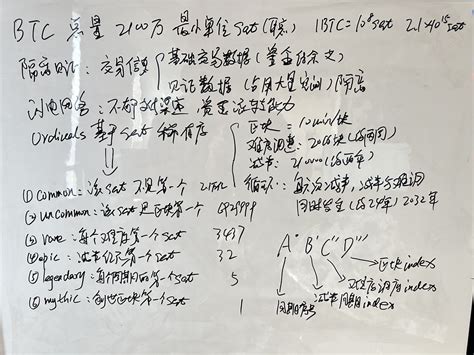 BTC 总量 2100万 最小单位sat(聪) 1BTC=10⁸sat 2.1×10¹⁵sat
隔离见证: 交易信息 基础交易数据
见证数据(占用大量空间)隔离
闪电网络:
Ordinals 基于sat
区块: 10min/块
难度调整: 2016块(约两周)
减半: 210000(约四年)
循环: 每六次减半, 减半与难调
同时发生(约24年) 2032年
① common: 该sat不是第一个 2.1千万亿
② uncommon: 该sat是区块第一个 6929999
③ rare: 每个难度第一个sat 3437
④ epic: 减半后第一个sat 32
⑤ legendary: 每个周期的第一个sat 5
⑥ mythic: 创世区块第一个sat 1
A°B'C"D'''
区块index
难度调度index
减半周期index
周期序号